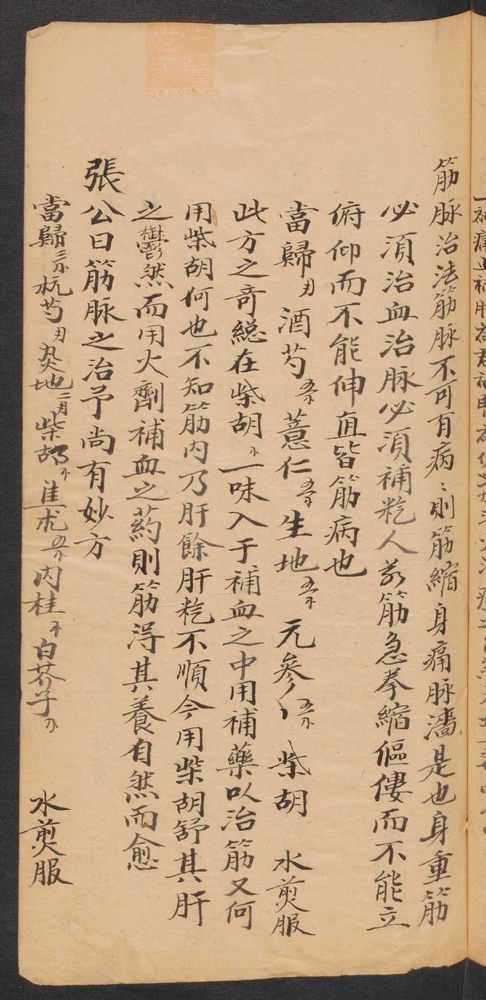 筋脉治法筋脉不可有病〻則筋縮身痛脉濇是也身重筋
必須治血治脉必須補矻人若筋急拳縮傴僂而不能立
俯仰而不能伸直皆筋病也
當歸 酒芍 薏仁 生地 元參 柴胡 水煎服
此方之奇総在柴胡一味入于補血之中用補藥以治筋又何
用柴胡何也不知筋内乃肝餘肝矻不順今用柴胡舒其肝
之鬱然而用大劑補血之药則筋淂其養自然而愈
張公曰筋脉之治予尚有妙方
當歸 杭芍 地 柴胡 朮 肉桂 白芥子 水煎服